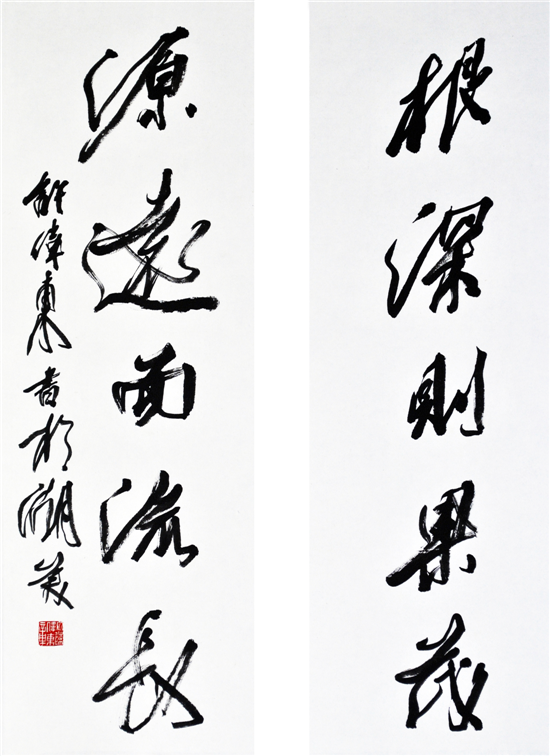 根深則果茂
源遠而流長
偉東書於湖美